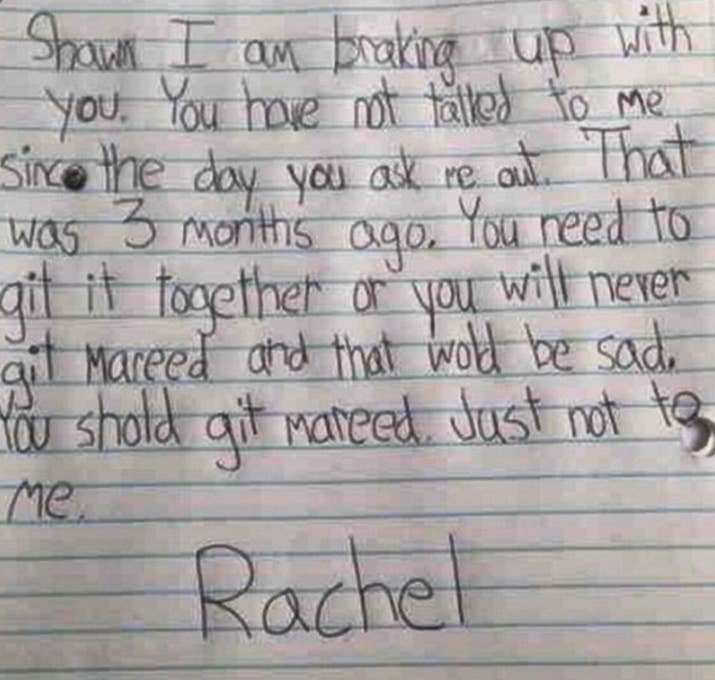 Shawn I am braking up with
you. You have not talked to me
since the day you ask me out. That
was 3 months ago. You need to
git it together or you will never
git mareed and that wold be sad.
You shold git mareed. Just not to
me.
Rachel